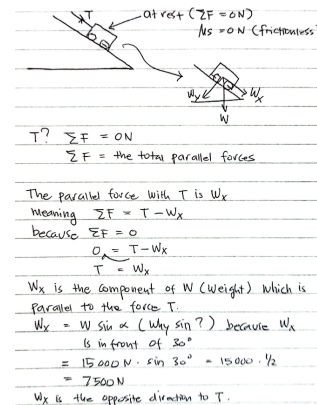 T at rest (ΣF = 0N)
Ns = 0N (frictionless
Wy Wx
W
T? ΣF = 0N
ΣF = the total parallel forces
The parallel force with T is Wx
meaning ΣF = T - Wx
because ΣF = 0
0 = T - Wx
T = Wx
Wx is the component of W (weight) which is
parallel to the force T.
Wx = W sin α (Why sin?) because Wx
is in front of 30°
= 15 000 N . sin 30° = 15 000 . 1/2
= 7500 N
Wx is the opposite direction to T.